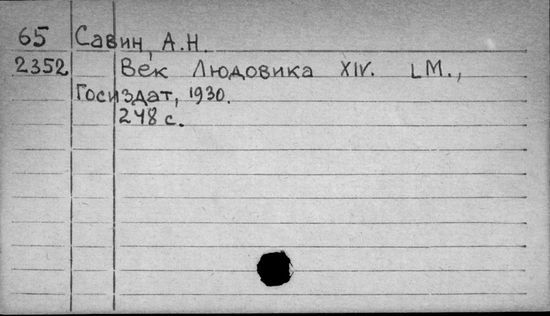 65 Савин, А.Н.
2352 Век Людовика XIV. [М.,
Госиздат, 1930.
248 с.